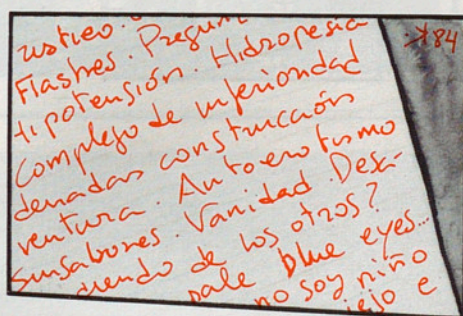 ustieo.
Flashes. Pregun
Hipotensión. Hidropesia
Complejo de inferioridad
denadas construcción
ventura. Autoerotismo
Sinsabores. Vanidad. Desa-
uendo de los otros?
pale blue eyes...
no soy niño
iejo e
84